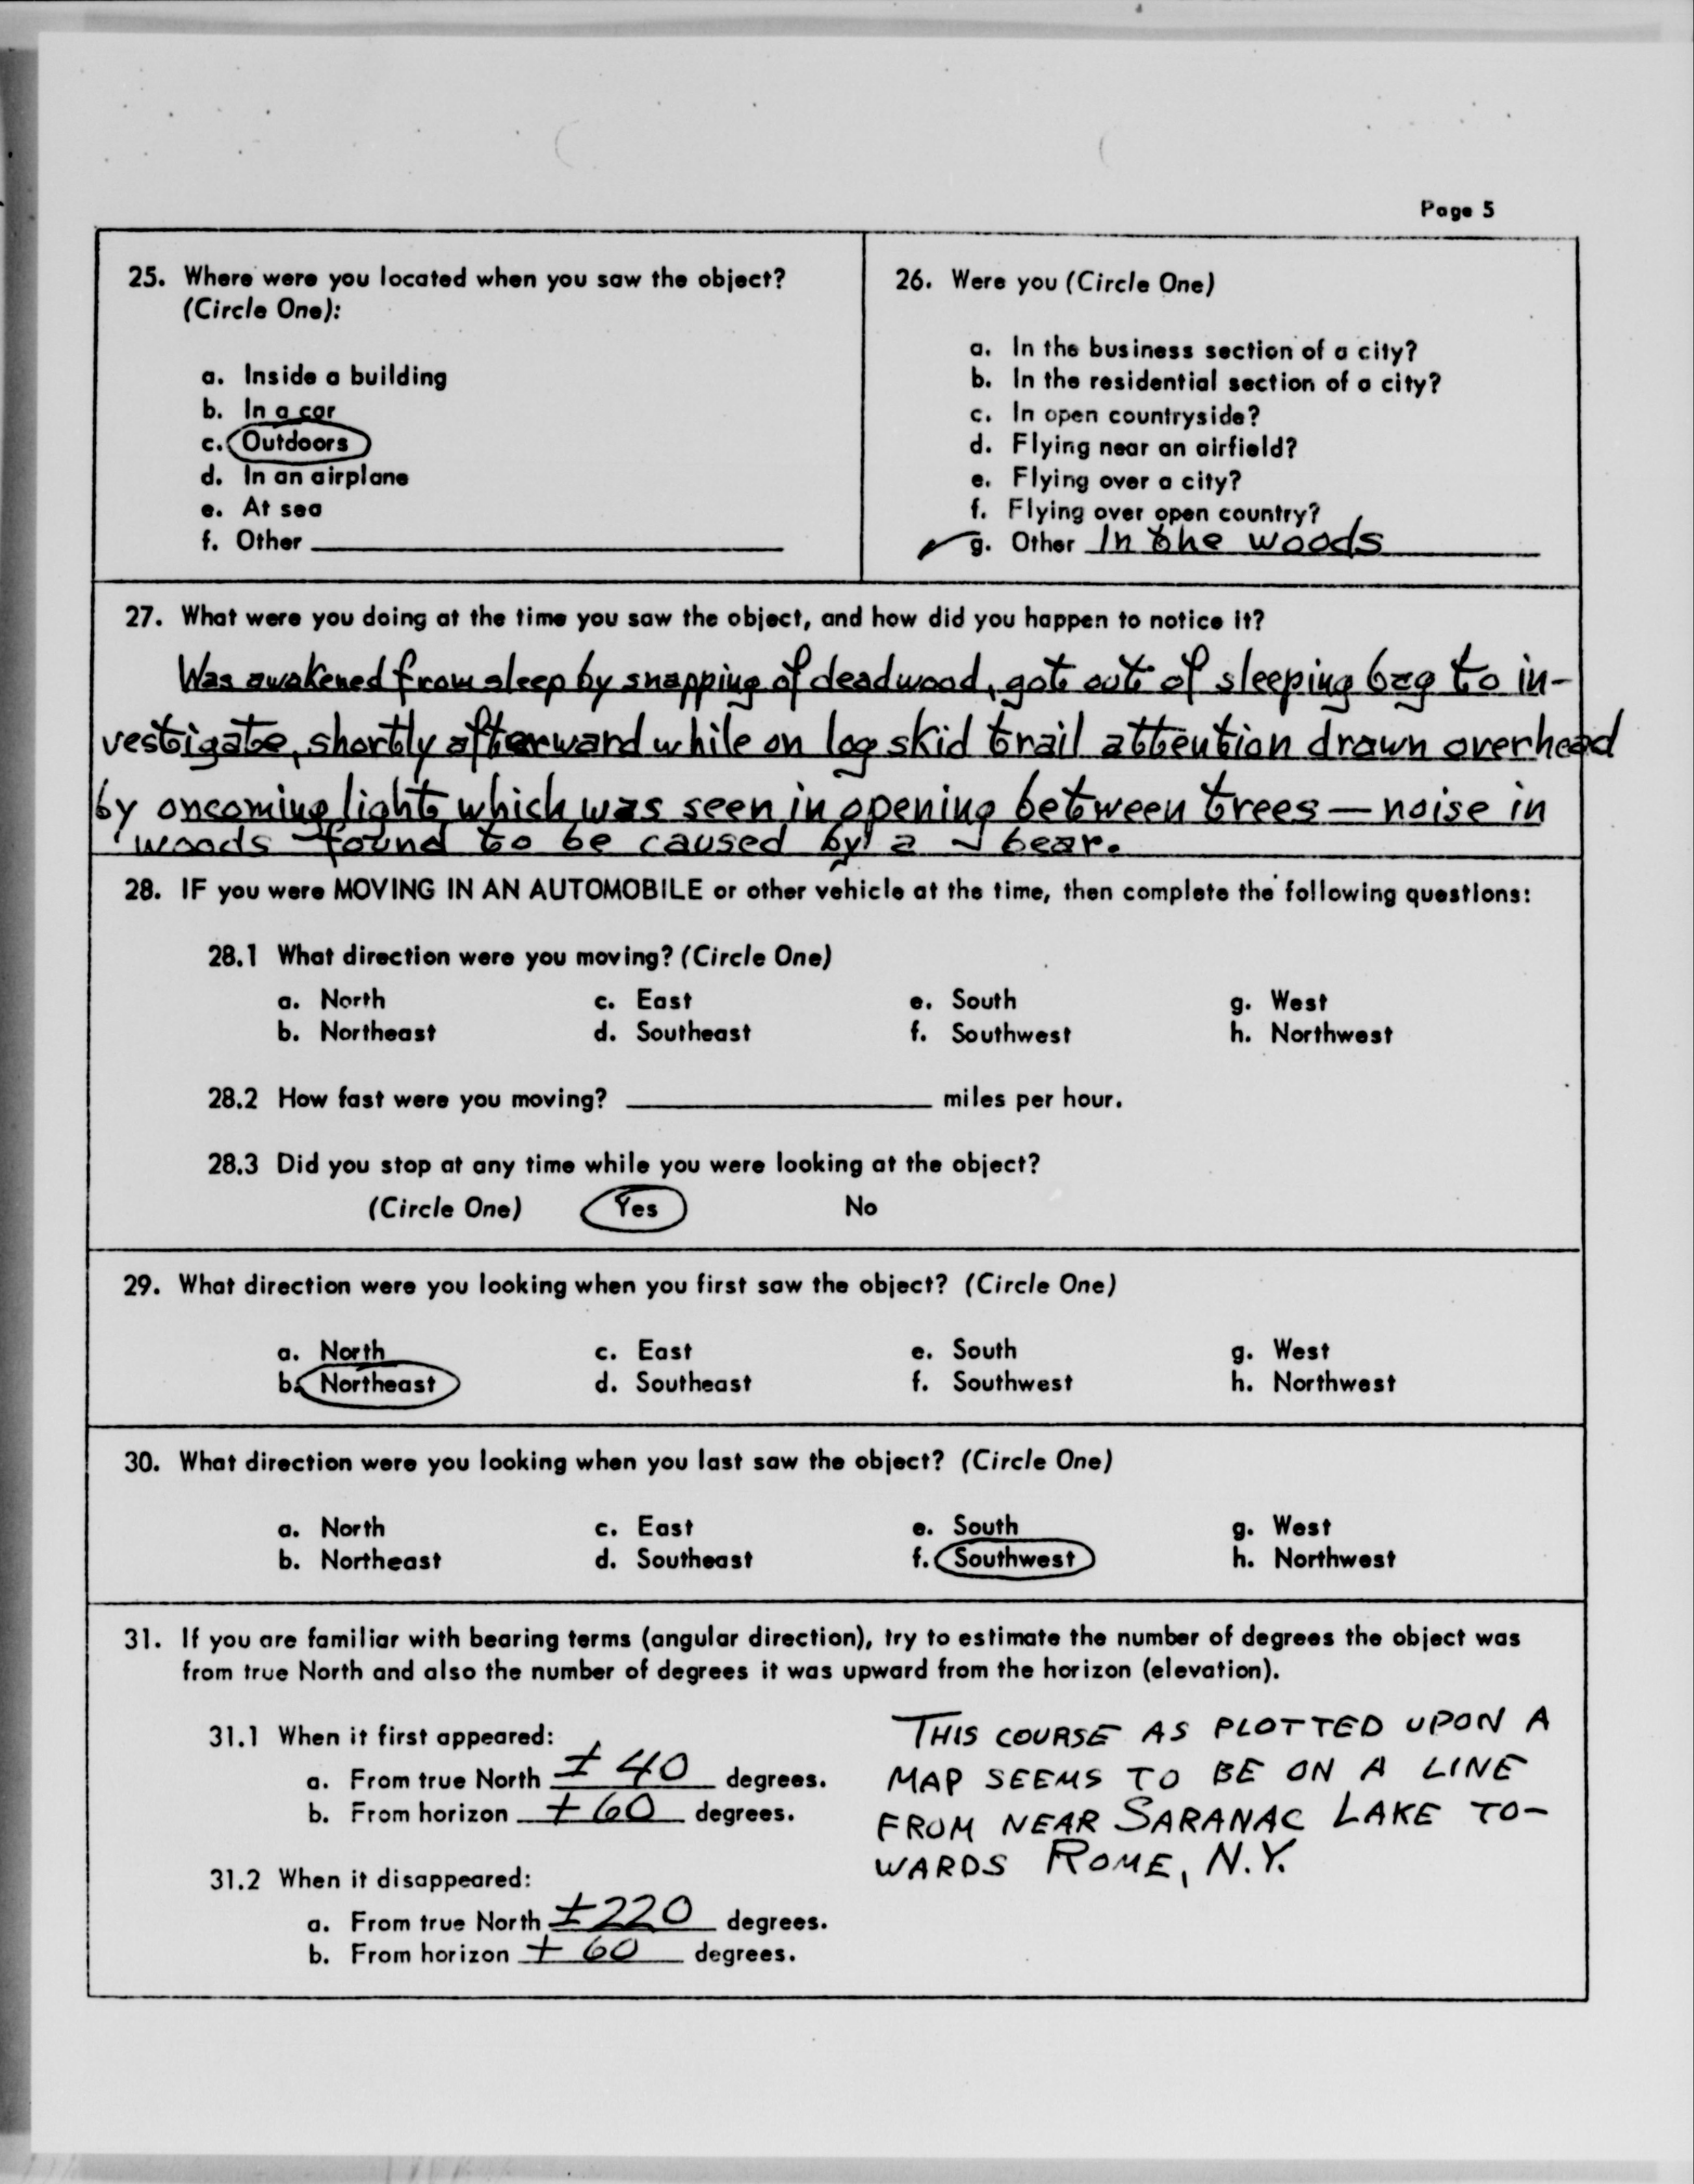 Page 5
25. Where were you located when you saw the object?
(Circle One):
a. Inside a building
b. In a car
c. Outdoors
d. In an airplane
e. At sea
f. Other
26. Were you (Circle One)
a. In the business section of a city?
b. In the residential section of a city?
c. In open countryside?
d. Flying near an airfield?
e. Flying over a city?
f. Flying over open country?
g. Other In the woods
27. What were you doing at the time you saw the object, and how did you happen to notice it?
Was awakened from sleep by snapping of deadwood, got out of sleeping bag to in-
vestigate, shortly afterward while on log skid trail attention drawn overhead
by oncoming light which was seen in opening between trees — noise in
woods found to be caused by a bear.
28. IF you were MOVING IN AN AUTOMOBILE or other vehicle at the time, then complete the following questions:
28.1 What direction were you moving? (Circle One)
a. North c. East e. South g. West
b. Northeast d. Southeast f. Southwest h. Northwest
28.2 How fast were you moving? miles per hour.
28.3 Did you stop at any time while you were looking at the object?
(Circle One) Yes No
29. What direction were you looking when you first saw the object? (Circle One)
a. North c. East e. South g. West
b. Northeast d. Southeast f. Southwest h. Northwest
30. What direction were you looking when you last saw the object? (Circle One)
a. North c. East e. South g. West
b. Northeast d. Southeast f. Southwest h. Northwest
31. If you are familiar with bearing terms (angular direction), try to estimate the number of degrees the object was
from true North and also the number of degrees it was upward from the horizon (elevation).
31.1 When it first appeared:
a. From true North ± 40 degrees.
b. From horizon + 60 degrees.
31.2 When it disappeared:
a. From true North ±220 degrees.
b. From horizon + 60 degrees.
THIS COURSE AS PLOTTED UPON A
MAP SEEMS TO BE ON A LINE
FROM NEAR SARANAC LAKE TO-
WARDS ROME, N.Y.